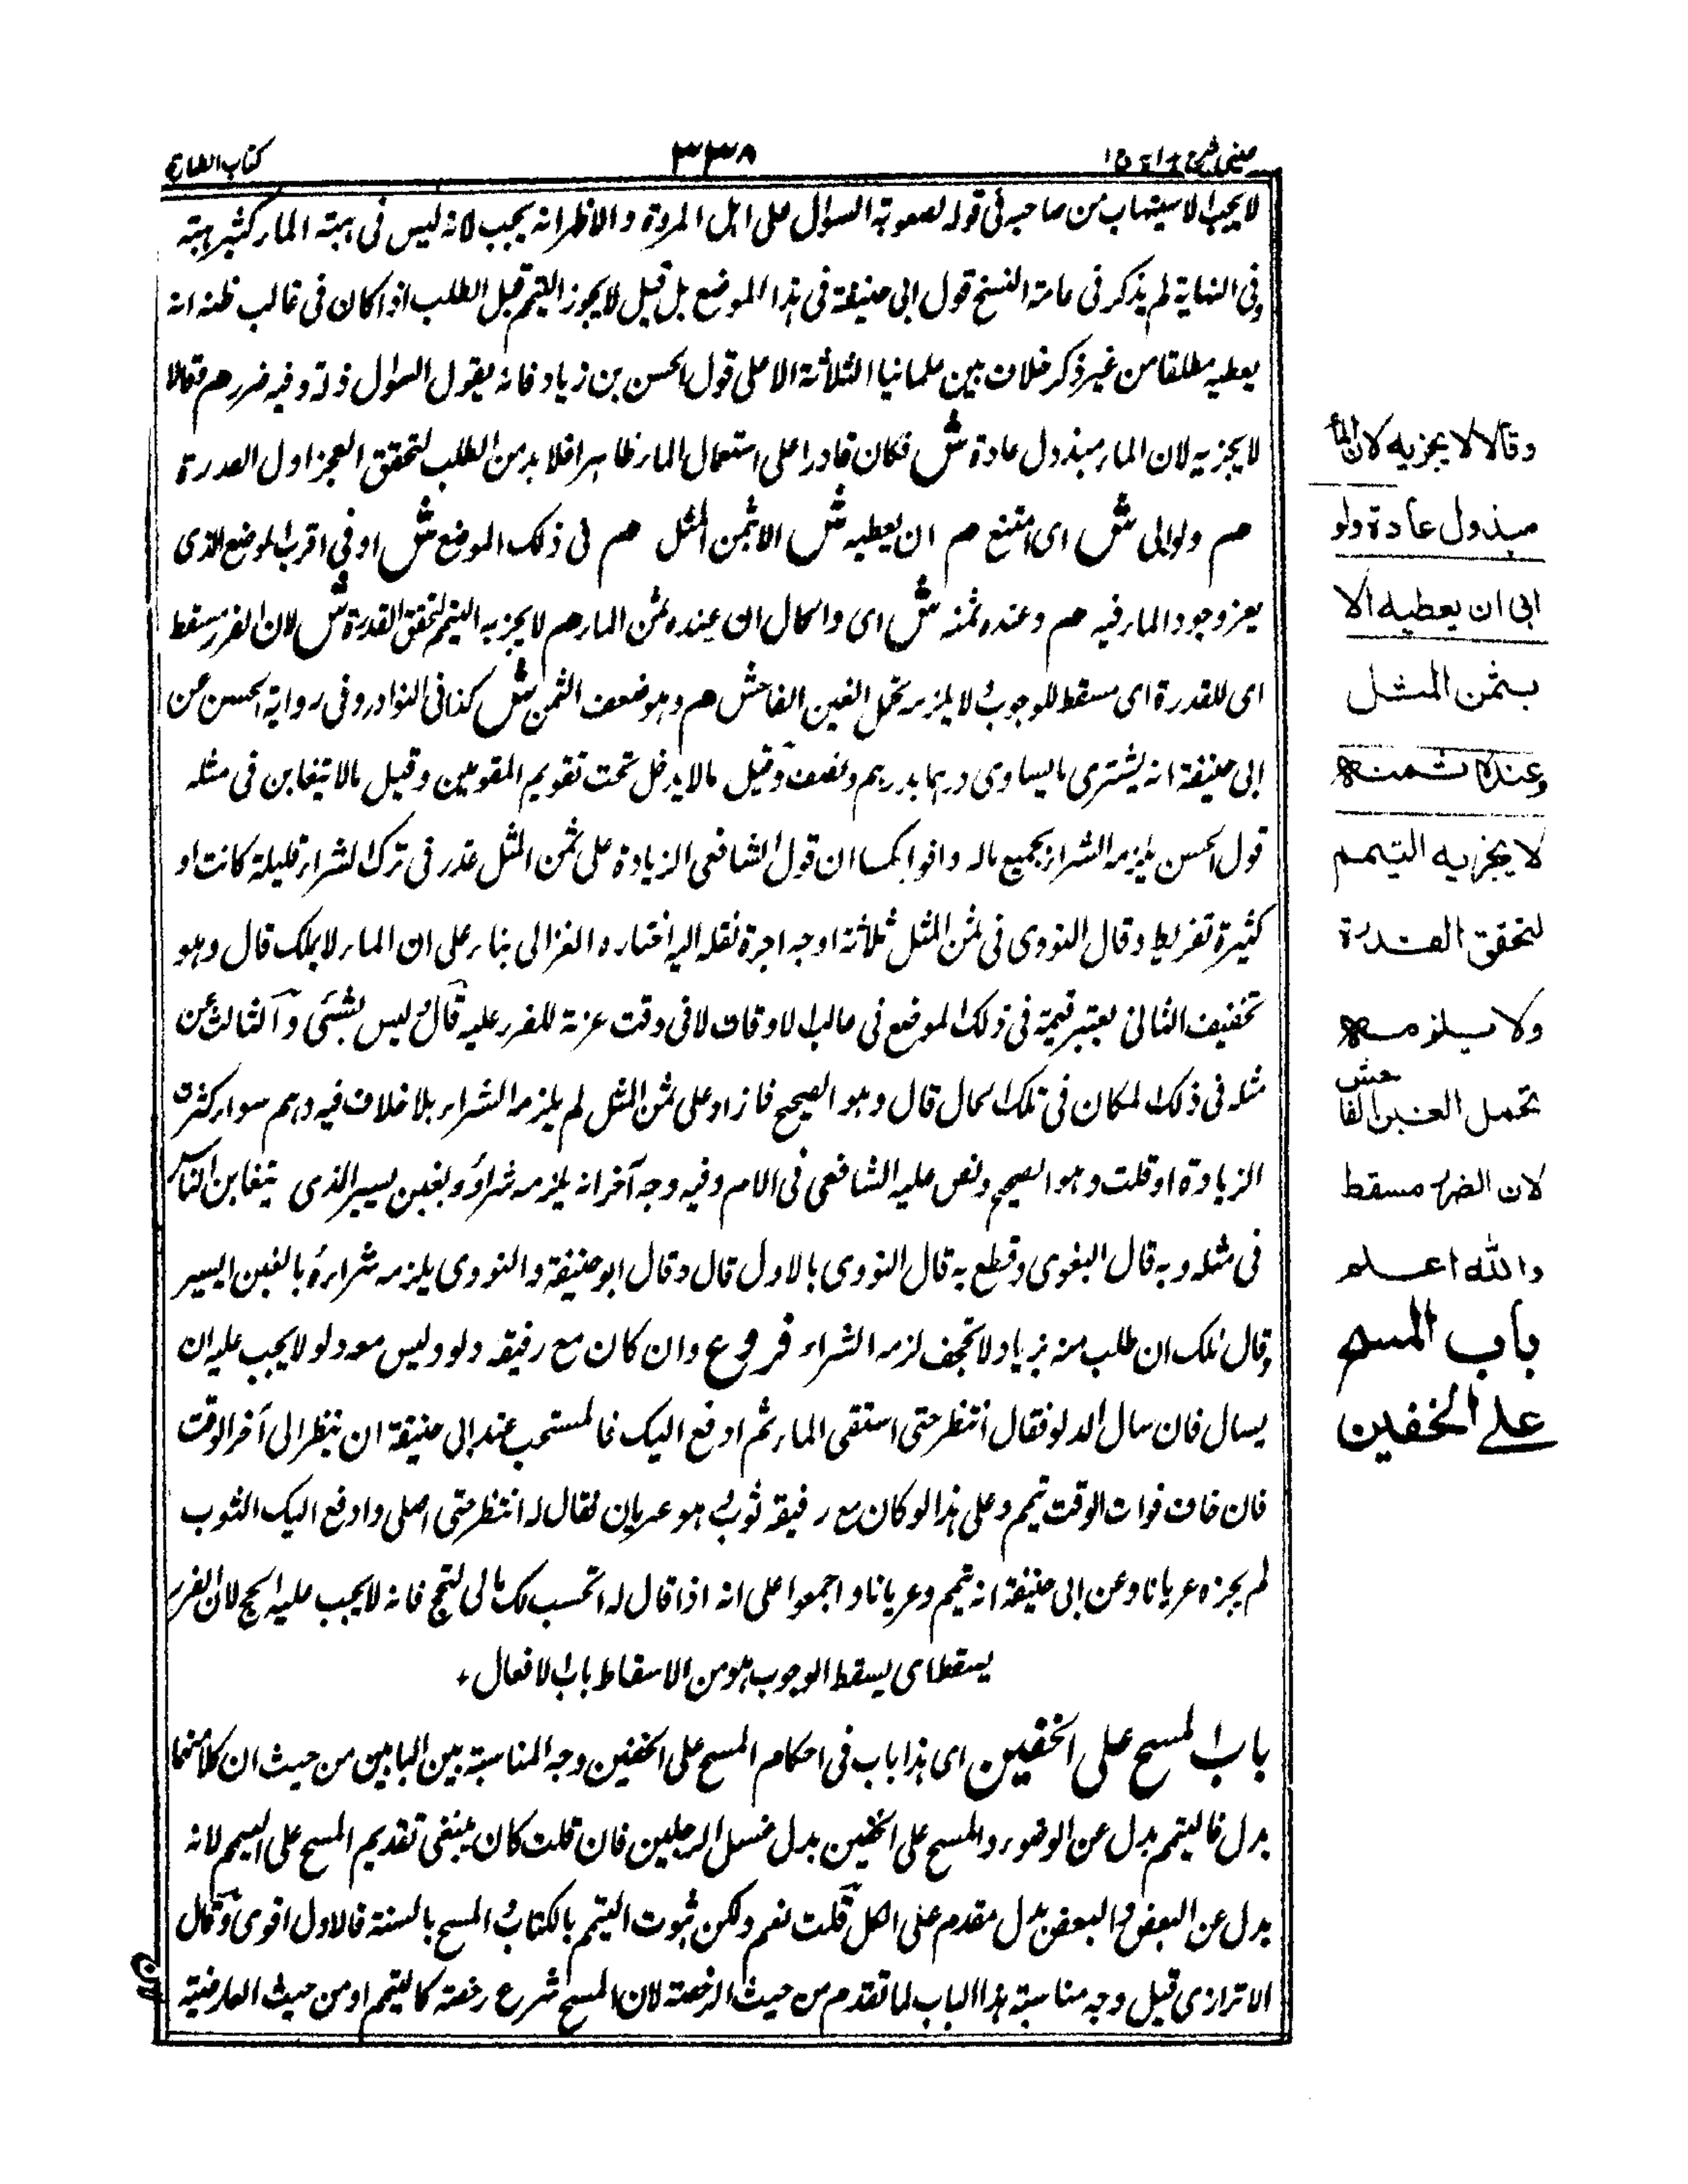 عینی شرح ہدایہ ج ۱
۳۳۸
کتاب الطهارة
لا يجب الاستيهاب من صاحبه فى قوله لصعوبة السوال على اهل المروة والاظهر انه يجب لانه ليس فى هبة الماء كثير هبة
وفى النهاية لم يذكر فى عامة النسخ قول ابى حنيفة فى هذا الموضع بل قيل لا يجوز التيمم قبل الطلب اذا كان فى غالب ظنه انه
يعطيه مطلقا من غير ذكر خلاف بين علمائنا الثلاثة الا على قول الحسن بن زياد فانه يقول السوال ذلة وفيه ضرر م وقالا
لا يجزيه لان الماء مبذول عادة ش فكان قادرا على استعمال الماء ظاهرا فلا بد من الطلب لتحقق العجز اول القدرة
م ولو ابى ش اى امتنع م ان يعطيه ش الا بثمن المثل م فى ذلك الموضع ش او فى اقرب الموضع الذى
يعز وجود الماء فيه م وعنده ثمنه ش اى والحال ان عنده ثمن الماء م لا يجزيه التيمم لتحقق القدرة ش لان الضرر مسقط
اى للقدرة اى مسقط للوجوب ولا يلزمه تحمل الغبن الفاحش م وهو ضعف الثمن ش كذا فى النوادر وفى رواية الحسن عن
ابى حنيفة انه يشترى ما يساوى درهما بدرهم ونصف وقيل مالا يدخل تحت تقويم المقومين وقيل مالا يتغابن فى مثله
قول الحسن يلزمه الشراء بجميع ماله ان قول الشافعى الزيادة على ثمن المثل عذر فى ترك الشراء قليلة كانت او
كثيرة تفريط وقال النووى فى ثمن المثل ثلاثة اوجه اجرة نقله اليه اختاره الغزالى بناء على ان الماء لا يملك قال وهو
تخفيف الثانى يعتبر قيمته فى ذلك الموضع فى غالب الاوقات لا فى وقت عزته للضرر عليه قال وليس بشئى والثالث ثمن
مثله فى ذلك المكان فى تلك الحال قال وهو الصحيح فما زاد على ثمن المثل لم يلزمه الشراء بلا خلاف فيه سواء كثرت
الزيادة او قلت وهو الصحيح ونص عليه الشافعى فى الام وفيه وجه آخر انه يلزمه شراؤه بغبن يسير الذى يتغابن الناس
فى مثله وبه قال البغوى وقطع به قال النووى بالاول قال وقال ابو حنيفة والنووى يلزمه شراءه بالغبن اليسير
وقال ملك ان طلب منه زيادة لا تجحف لزمه الشراء فروع وان كان مع رفيقه دلو وليس معه دلو لا يجب عليه ان
يسال فان سال الدلو فقال انتظر حتى استقى الماء ثم ادفع اليك فالمستحب عند ابى حنيفة ان ينتظر الى آخر الوقت
فان خاف فوات الوقت تيمم وعلى هذا لو كان مع رفيقه ثوب وهو عريان فقال له انتظر حتى اصلى وادفع اليك الثوب
لم يجزه عريانا وعن ابى حنيفة انه تيمم وعريانا واجمعوا على انه اذا قال له لك مالى لتحج فانه لا يجب عليه الحج لان الضرر
يسقط اى يسقط الوجوب هو من الاسقاط باب الافعال +
باب المسح على الخفين اى هذا باب فى احكام المسح على الخفين وجه المناسبة بين البابين من حيث ان كلا منهما
بدل فالتيمم بدل عن الوضوء والمسح على الخفين بدل غسل الرجلين فان قلت كان ينبغى تقديم المسح على التيمم لانه
بدل عن البعض والبعض بدل مقدم على الكل قلت نعم ولكن ثبوت التيمم بالكتاب والمسح بالسنة فالاول اقوى وقال
الاترازى قيل وجه مناسبة هذا الباب لما تقدم من حيث الرخصة لان المسح شرع رخصة كالتيمم او من حيث العارضية
وقالا لا يجزيه لان الماء
مبذول عادة ولو
ابى ان يعطيه الا
بثمن المثل
وعنده ثمنه
لا يجزيه التيمم
لتحقق القدرة
ولا يلزمه
تحمل الغبن الفاحش
لان الضرر مسقط
والله اعلم
باب المسح
على الخفين